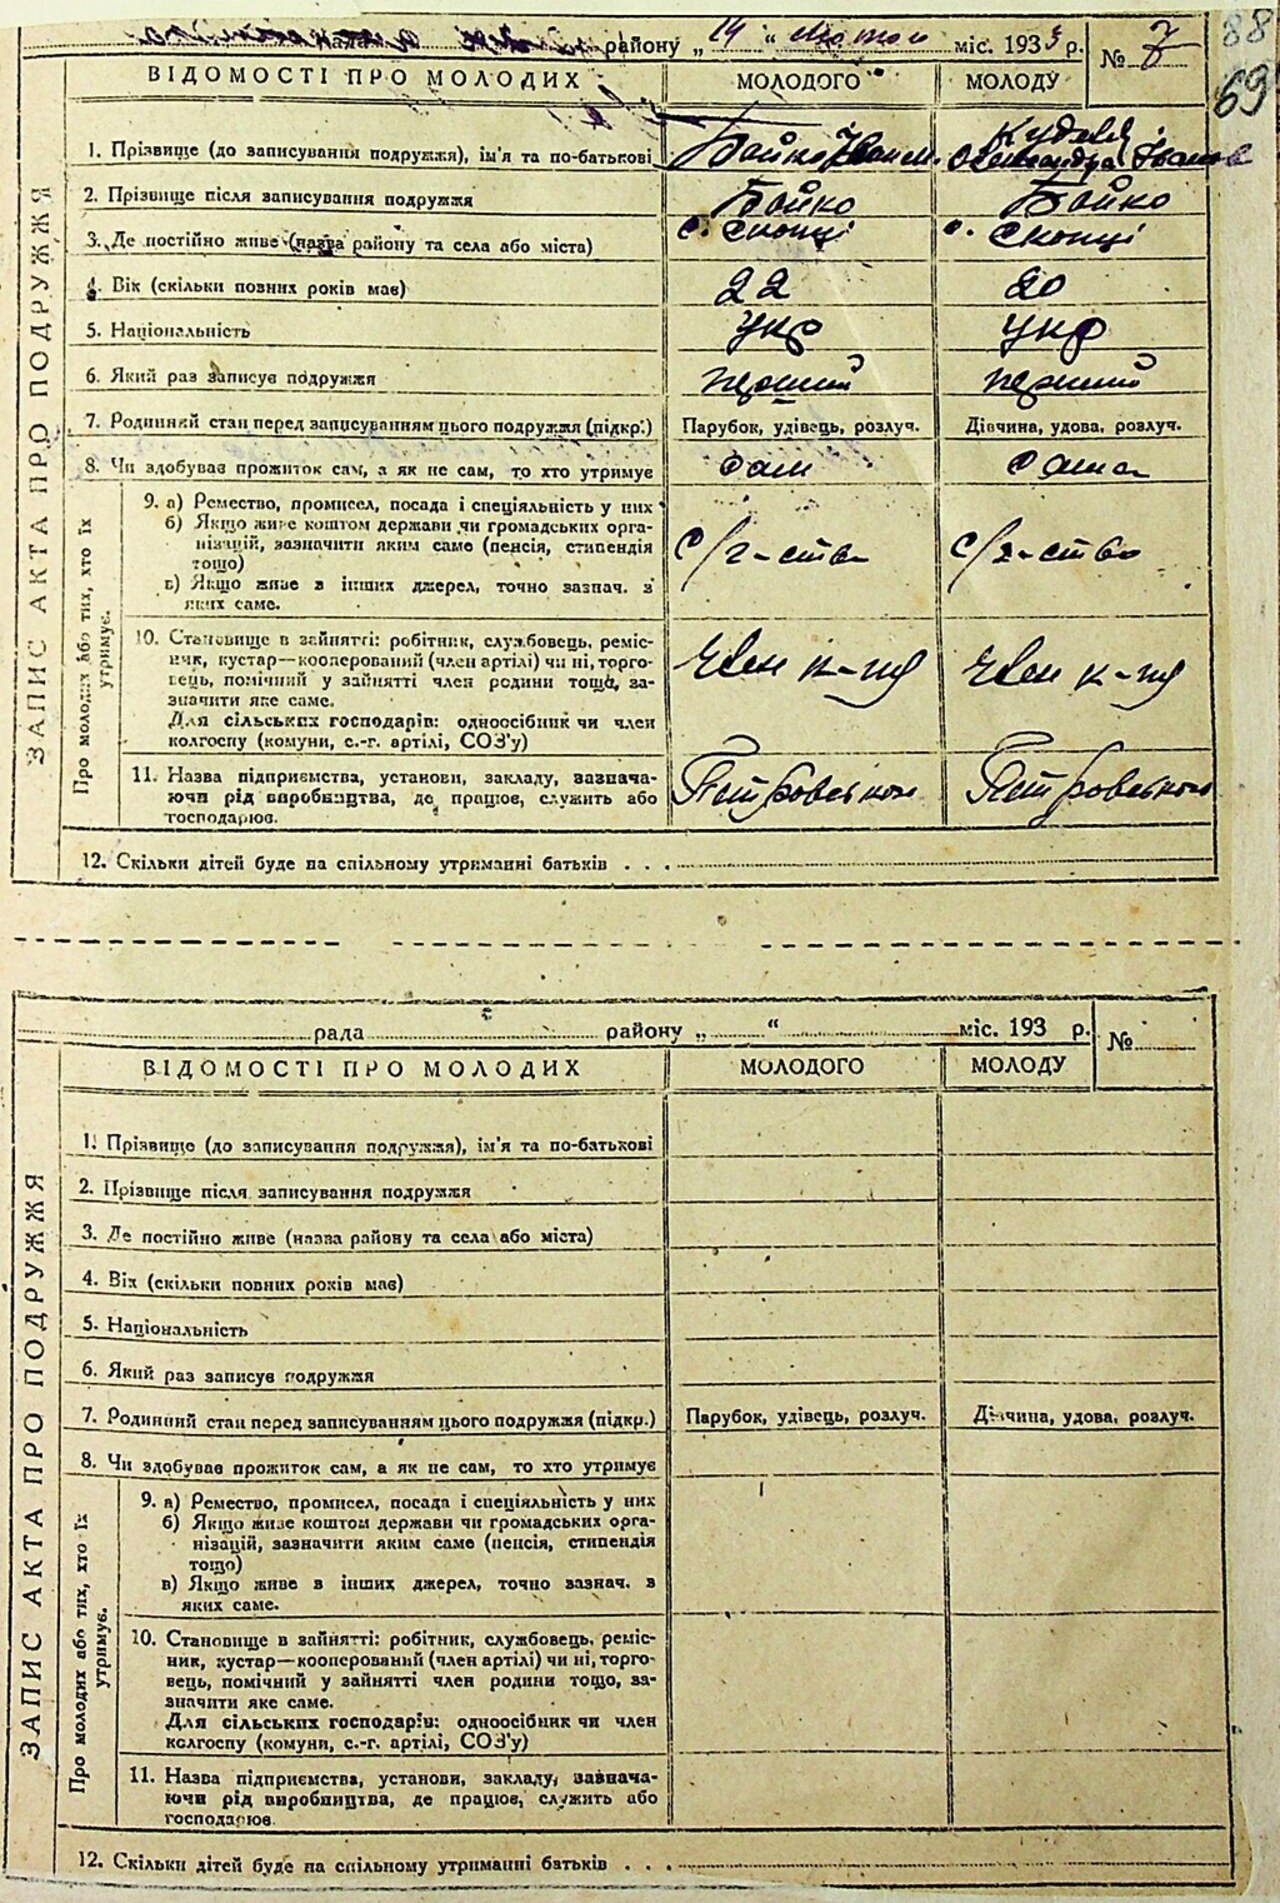 рада району „ 14 “ Лютого міс. 1933 р. № 7
88
69
ВІДОМОСТІ ПРО МОЛОДИХ МОЛОДОГО МОЛОДУ
ЗАПИС АКТА ПРО ПОДРУЖЖЯ
1. Прізвище (до записування подружжя), ім'я та по-батькові Бойко Іван Кудаля Олександра Іванов
2. Прізвище після записування подружжя Бойко Бойко
3. Де постійно живе (назва району та села або міста) с. Скопці с. Скопці
4. Вік (скільки повних років має) 22 20
5. Національність Укр Укр
6. Який раз записує подружжя перший перший
7. Родинний стан перед записуванням цього подружжя (підкр.) Парубок, удівець, розлуч. Дівчина, удова, розлуч.
8. Чи здобував прожиток сам, а як не сам, то хто утримує сам сама
Про молодих або тих, хто їх утримує.
9. а) Ремество, промисел, посада і спеціяльність у них
б) Якщо живе коштом держави чи громадських орга-
нізацій, зазначити яким саме (пенсія, стипендія
тощо) с/г-ство с/г-ство
в) Якщо живе з інших джерел, точно зазнач. з
яких саме.
10. Становище в зайнятті: робітник, службовець, реміс-
ник, кустар—кооперований (член артілі) чи ні, торго- Член к-пу Член к-пу
вець, помічний у зайнятті член родини тощо, за-
значити яке саме.
Для сільських господарів: одноосібник чи член
колгоспу (комуни, с.-г. артілі, СОЗ'у)
11. Назва підприємства, установи, закладу, зазнача-
ючи рід виробництва, де працює, служить або Петровського Петровського
господарює.
12. Скільки дітей буде на спільному утриманні батьків . . .
рада району „ “ міс. 193 р. №
ВІДОМОСТІ ПРО МОЛОДИХ МОЛОДОГО МОЛОДУ
ЗАПИС АКТА ПРО ПОДРУЖЖЯ
1. Прізвище (до записування подружжя), ім'я та по-батькові
2. Прізвище після записування подружжя
3. Де постійно живе (назва району та села або міста)
4. Вік (скільки повних років має)
5. Національність
6. Який раз записує подружжя
7. Родинний стан перед записуванням цього подружжя (підкр.) Парубок, удівець, розлуч. Дівчина, удова, розлуч.
8. Чи здобував прожиток сам, а як не сам, то хто утримує
Про молодих або тих, хто їх утримує.
9. а) Ремество, промисел, посада і спеціяльність у них
б) Якщо живе коштом держави чи громадських орга-
нізацій, зазначити яким саме (пенсія, стипендія
тощо)
в) Якщо живе з інших джерел, точно зазнач. з
яких саме.
10. Становище в зайнятті: робітник, службовець, реміс-
ник, кустар—кооперований (член артілі) чи ні, торго-
вець, помічний у зайнятті член родини тощо, за-
значити яке саме.
Для сільських господарів: одноосібник чи член
колгоспу (комуни, с.-г. артілі, СОЗ'у)
11. Назва підприємства, установи, закладу, зазнача-
ючи рід виробництва, де працює, служить або
господарює.
12. Скільки дітей буде на спільному утриманні батьків . . .